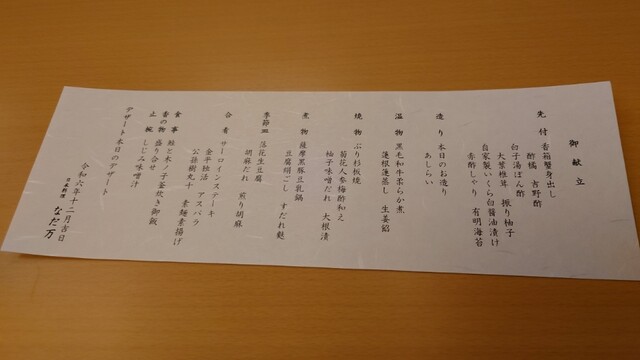 御献立
先付 香箱蟹身出し
酢橘 吉野酢
白子湯ぽん酢
大黒椎茸 振り柚子
自家製いくら白醤油漬け
赤酢しゃり 有明海苔
造り 本日のお造り
あしらい
温物 黒毛和牛柔らか煮
蓮根蓮蒸し 生姜餡
焼物 ぶり杉板焼
菊花人参梅酢和え
柚子味噌だれ 大根漬
煮物 薩摩黒豚豆乳鍋
豆腐絹ごし すだれ麩
季節皿 落花生豆腐
胡麻だれ 煎り胡麻
合肴 サーロインステーキ
金平独活 アスパラ
公孫樹丸十 素麺素揚げ
食事 鮭と木ノ子釜炊き御飯
香の物 盛り合せ
止椀 しじみ味噌汁
デザート 本日のデザート
令和六年十二月吉日
日本料理 なだ万